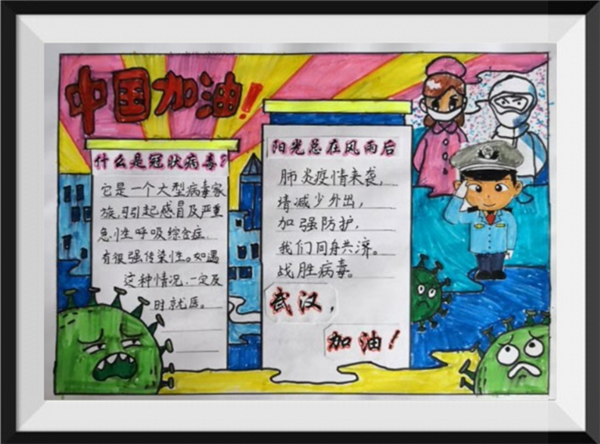 中国加油!
什么是冠状病毒?
它是一个大型病毒家
族,可引起感冒及严重
急性呼吸综合症
有很强传染性。如遇
这种情况、一定及
时就医。
阳光总在风雨后
肺炎疫情来袭,
请减少外出,
加强防护,
我们同舟共济。
战胜病毒。
武汉,
加油!